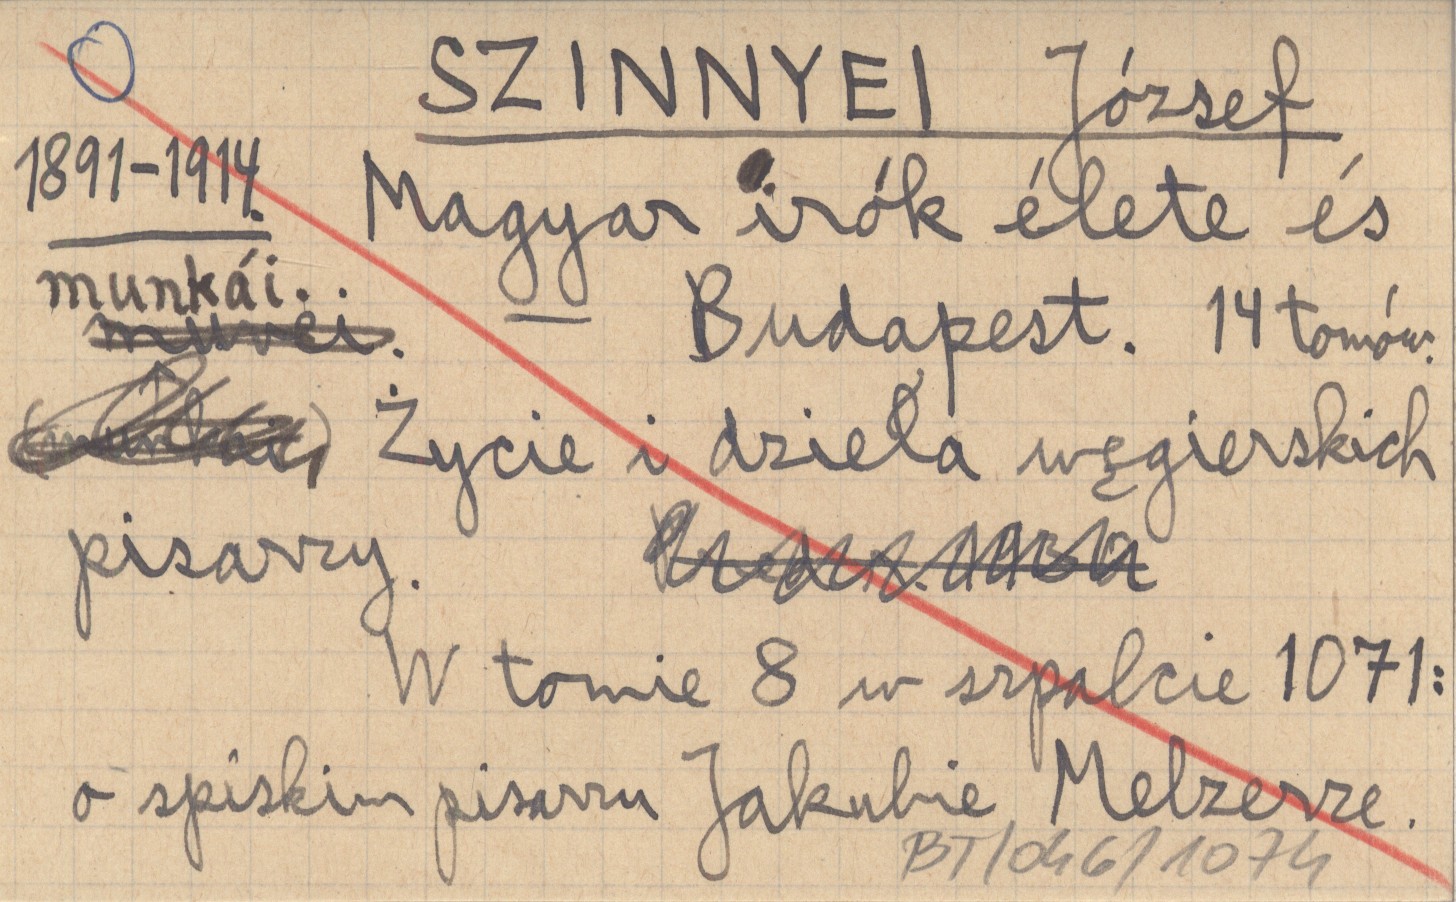 SZINNYEI József
1891-1914. Magyar irók élete és
munkái.. Budapest. 14 tomów.
Życie i dzieła węgierskich
pisarzy.
W tomie 8 w szpalcie 1071:
o spiskim pisarzu Jakubie Melzerze.
BT/046/1074